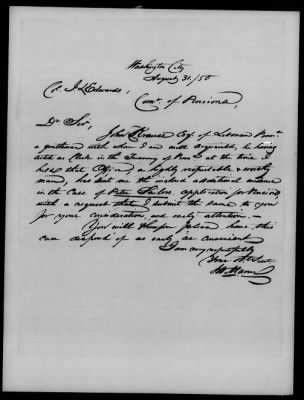 Washington City
August 31/50
Col. J L Edwards,
Comr. of Pensions,
Dr Sir,
John Krause Esqr. of Lebanon Penna.
a gentleman with whom I am well acquainted, he having
acted as Clerk in the Treasury of Penna at the time I
held that Office, a highly respectable & worthy
man, has sent me the inclosed additional evidence
in the Case of Peter application for Pension
with a request that I submit the same to you
for your consideration, and early attention. —
You will therefore please have this
case disposed of as early as convenient
I am very respectfully
Your Obt. Servt